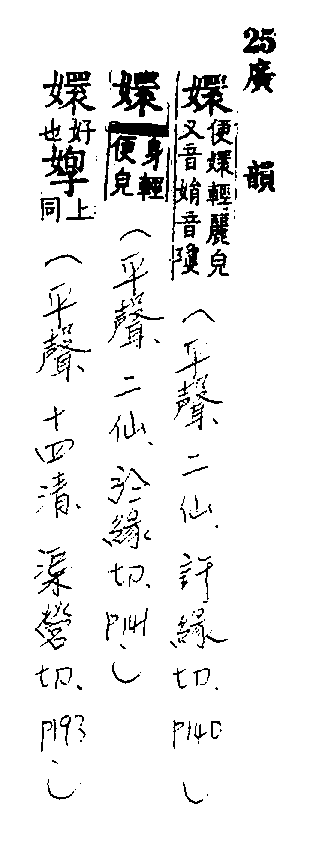 25廣韻
嬛便嬛輕麗皃又音娟音瓊(平聲、二仙、許緣切、P140)
嬛身輕便皃(平聲、二仙、於緣切、P141)
嬛好也上同(平聲、十四清、渠營切、P193)